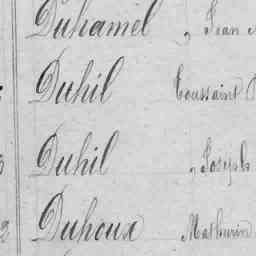 Duhamel, Jean
Duhil Toussaint
Duhil, Joseph
2 Duhoux Mathurin